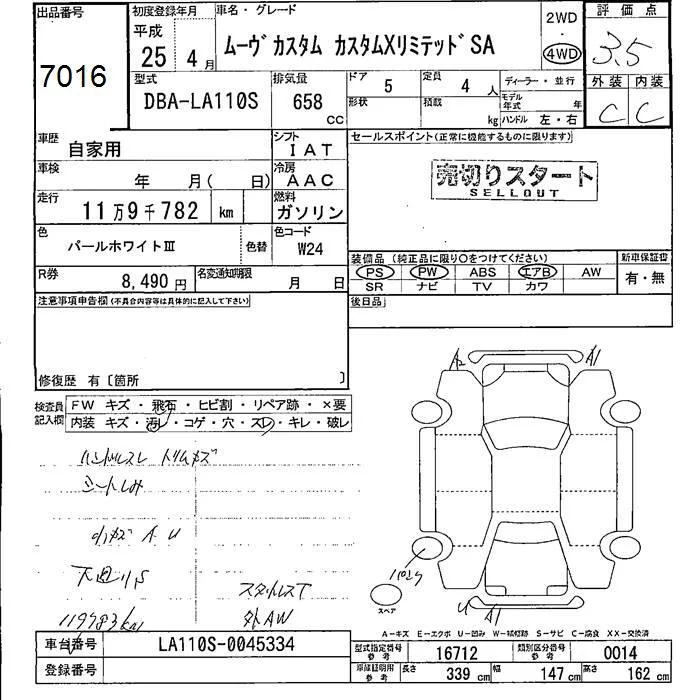 出品番号
7016
初度登録年月
平成
25年 4月
車名・グレード
ムーヴ カスタム カスタムXリミテッド SA
2WD
・
4WD
評価点
3.5
外装 内装
C C
型式
DBA-LA110S
排気量
658
CC
ドア
5
定員
4人
形状
積載
kg
ディーラー・並行
モデル年式 年
ハンドル 左・右
車歴
自家用
シフト
IAT
セールスポイント(正常に機能するものに限ります)
車検
年 月( 日)
冷房
AAC
売切りスタート
SELLOUT
走行
11万9千782 km
燃料
ガソリン
色
パールホワイトⅢ
色替
色コード
W24
装備品 (純正品に限り○をつけてください)
新車保証書
PS PW ABS エアB AW
SR ナビ TV カワ
有・無
R券
8,490円
名変通知期限
月 日
後日品
注意事項申告欄(不具合内容等は具体的に記入して下さい)
修復歴 有〔箇所 〕
検査員記入欄
FW キズ・飛石・ヒビ割・リペア跡・×要
内装 キズ・汚レ・コゲ・穴・スレ・キレ・破レ
ハンドルスレ トリムキズ
シートしみ
小キズ A U
下廻りS
スタットレスT
119783km
外AW
A2
A1
U
A1
スペア
A-キズ E-エクボ U-凹み W-補修跡 S-サビ C-腐食 XX-交換済
車台番号
LA110S-0045334
登録番号
型式指定番号
参考
16712
類別区分番号
参考
0014
車庫証明用
参考
長さ
339 cm
幅
147 cm
高さ
162 cm